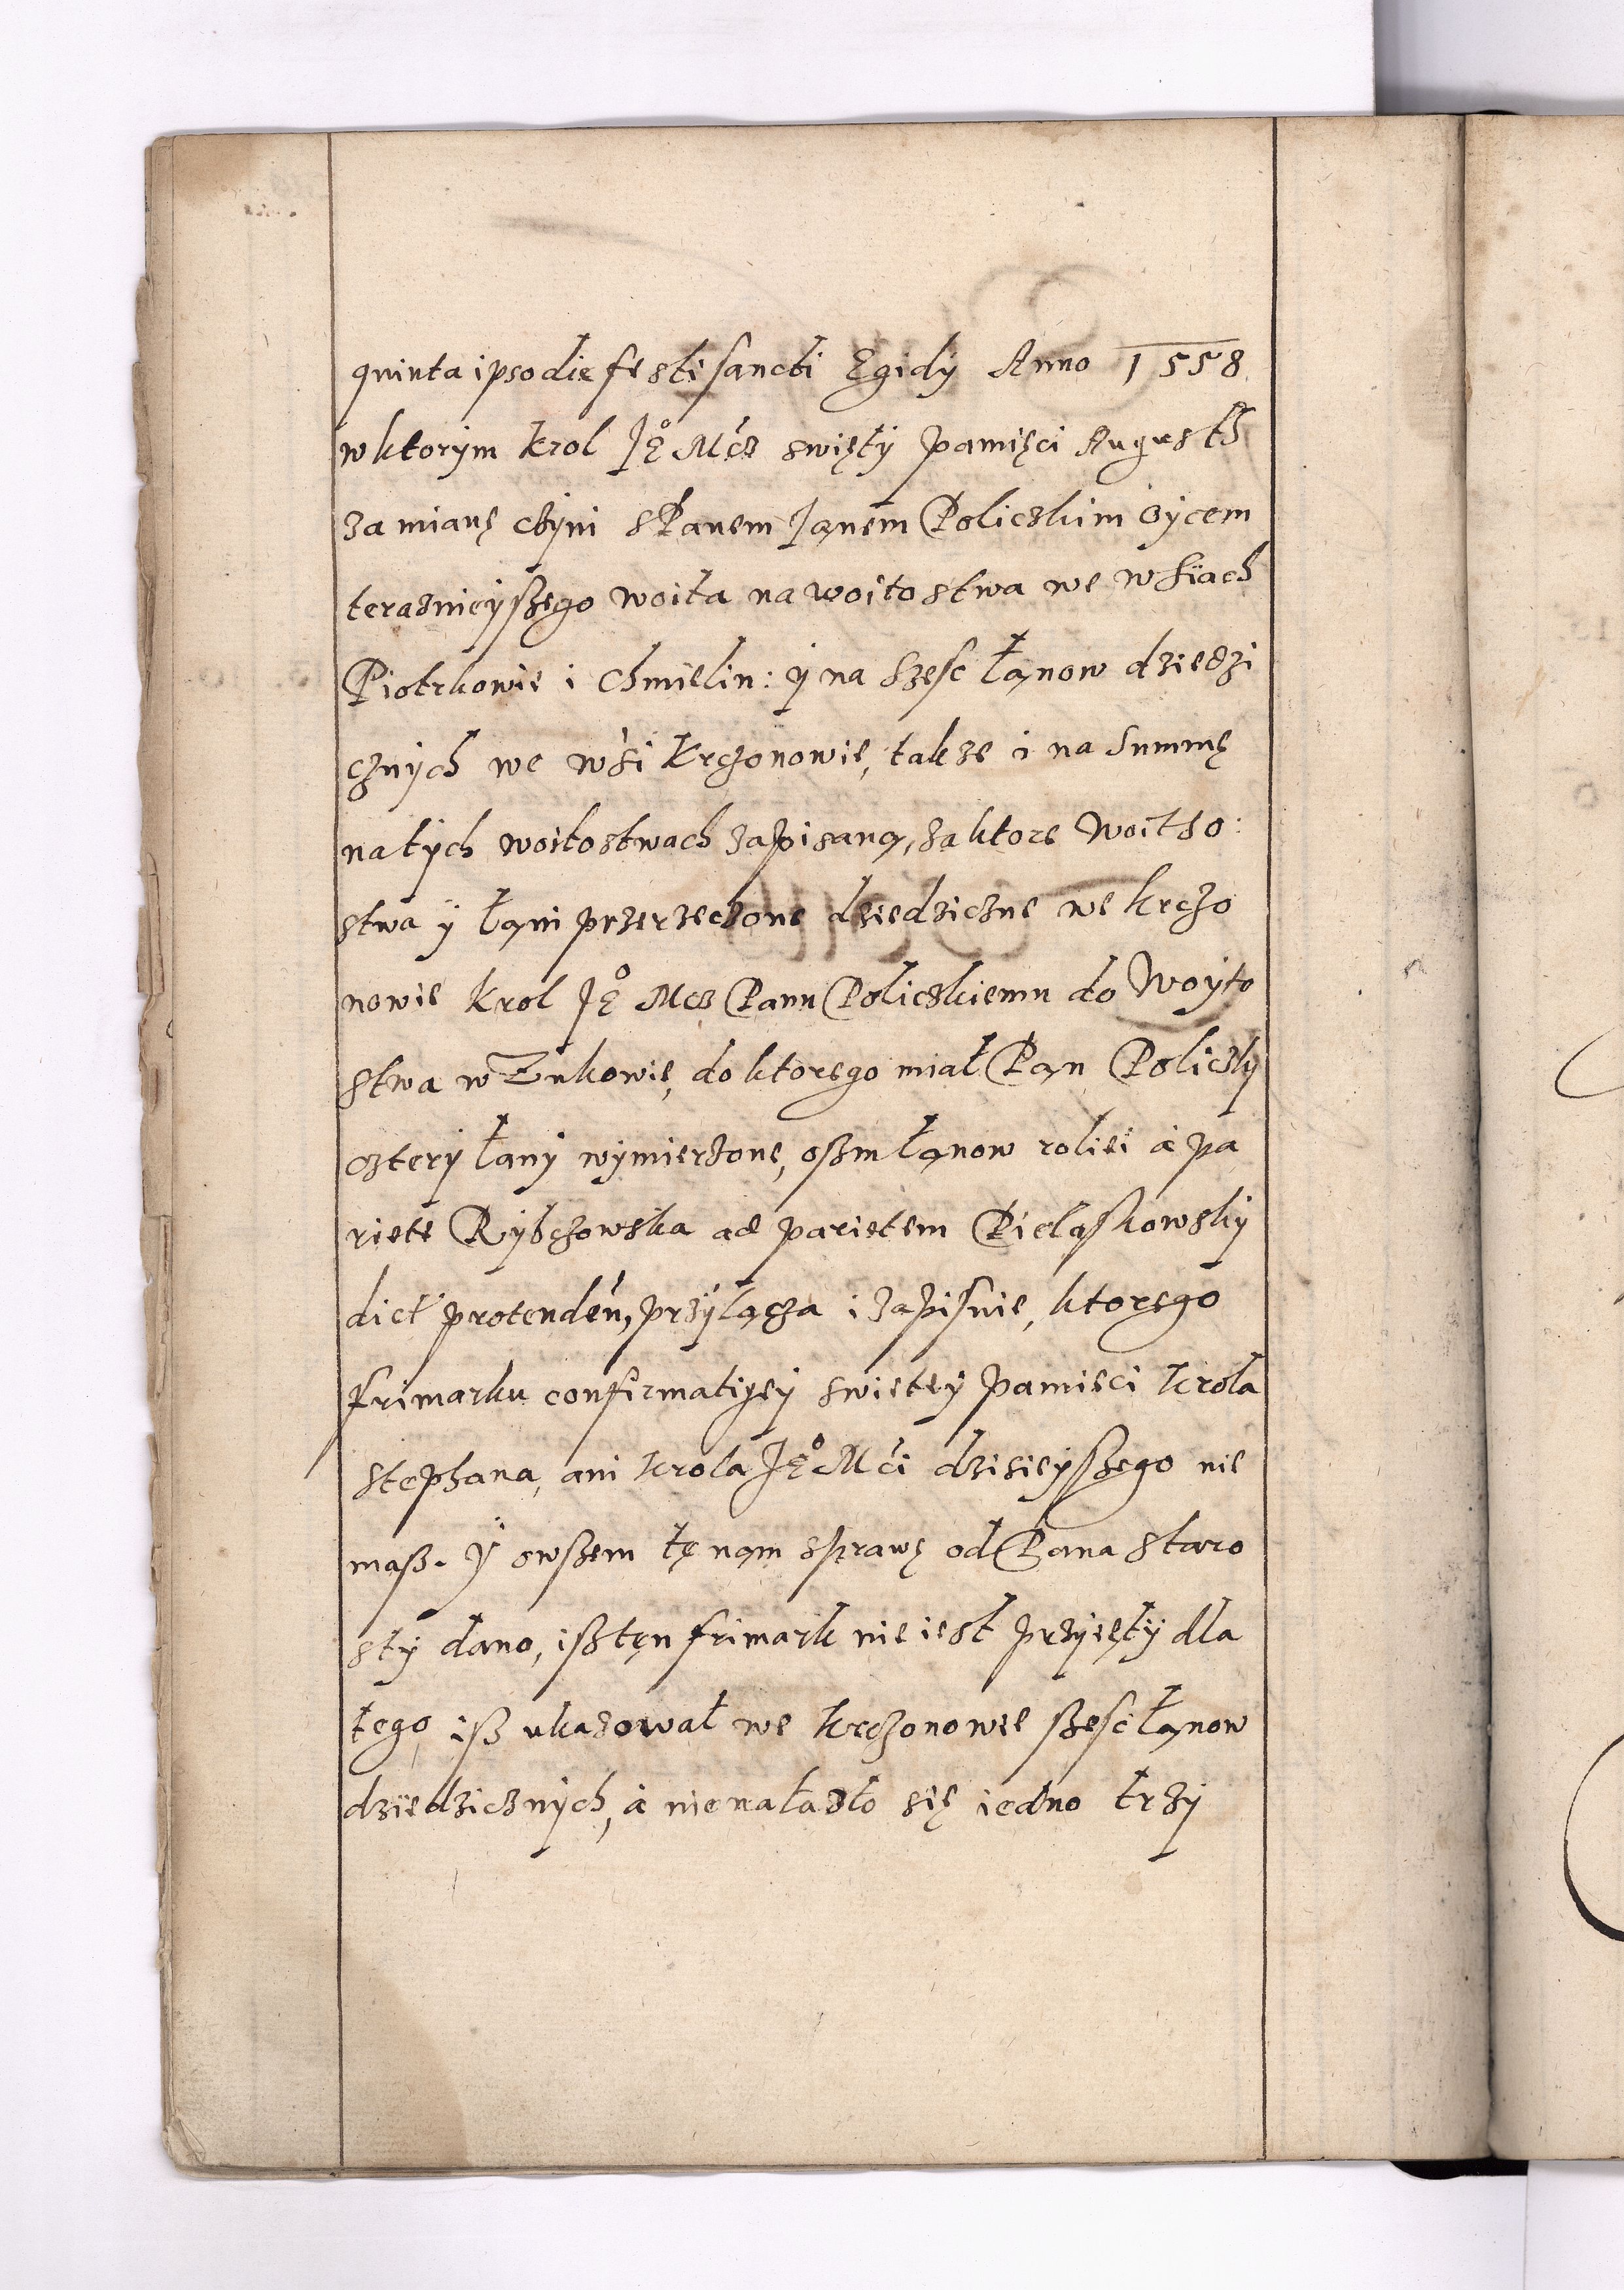 quinta ipso die festi sancti Egidÿ Anno 1558
w ktorÿm Krol Je͛° Mćz swiętÿ pamięci August
zamianę czÿni s Panem Janem Policzkim oÿcem
teraznieÿßego woita na woitostwa we wsiach
Piotrkowie i Chmielin: ÿ na szesc łanow dziedzi
cznÿch we wsi Krczonowie, takze i na summę
na tÿch woitostwach zapisaną, za ktore woitso:
stwa ÿ łani przerzeczone dziedziczne we Krczo
nowie Krol Je° Mcz Panu Policzkiemu do Woÿto
stwa w Zukowie, do ktorego miał Pan Policzkÿ
czterÿ łanÿ wÿmierzone, oßm łanow roliei à pa
riete Rÿbczowska ad parietem Pielaskowskÿ
dict protenden, przÿłącza i zapisuie, ktorego
frimarku confirmatiÿeÿ swieteÿ pamieci Krola
Stephana, ani Krola Je° Mći dzisieÿßego nie
maß. Ÿ owßem tę nam sprawę od Pana Staro
stÿ dano, iß ten frimark nie iest przÿiętÿ dla
tego, iß ukazował we Krczonowie ßesc łanow
dziedzicznÿch, à nie nalazło się iedno trzÿ